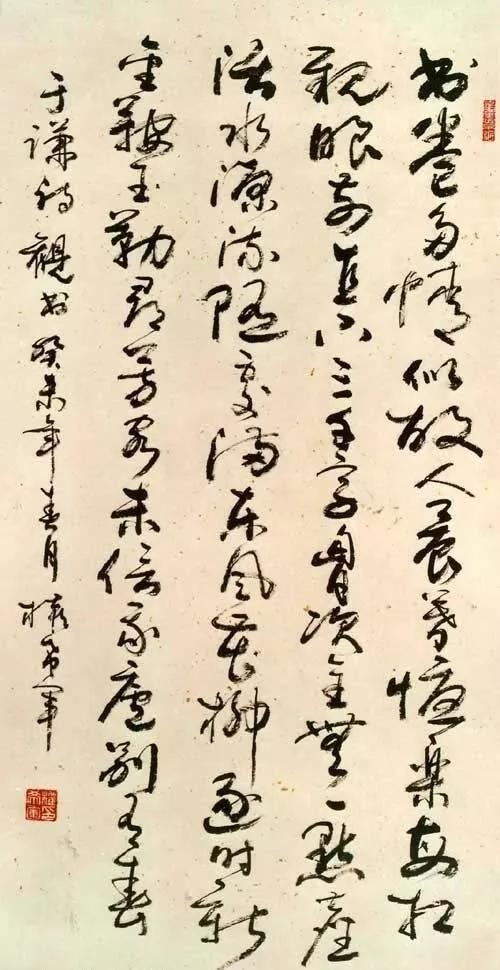 書卷多情似故人晨昏憂樂每相
親眼前直下三千字胸次全無一點塵
活水源流隨處滿東風花柳逐時新
金鞍玉勒尋芳客未信我廬別有春
于謙詩觀書癸未年春月權希軍